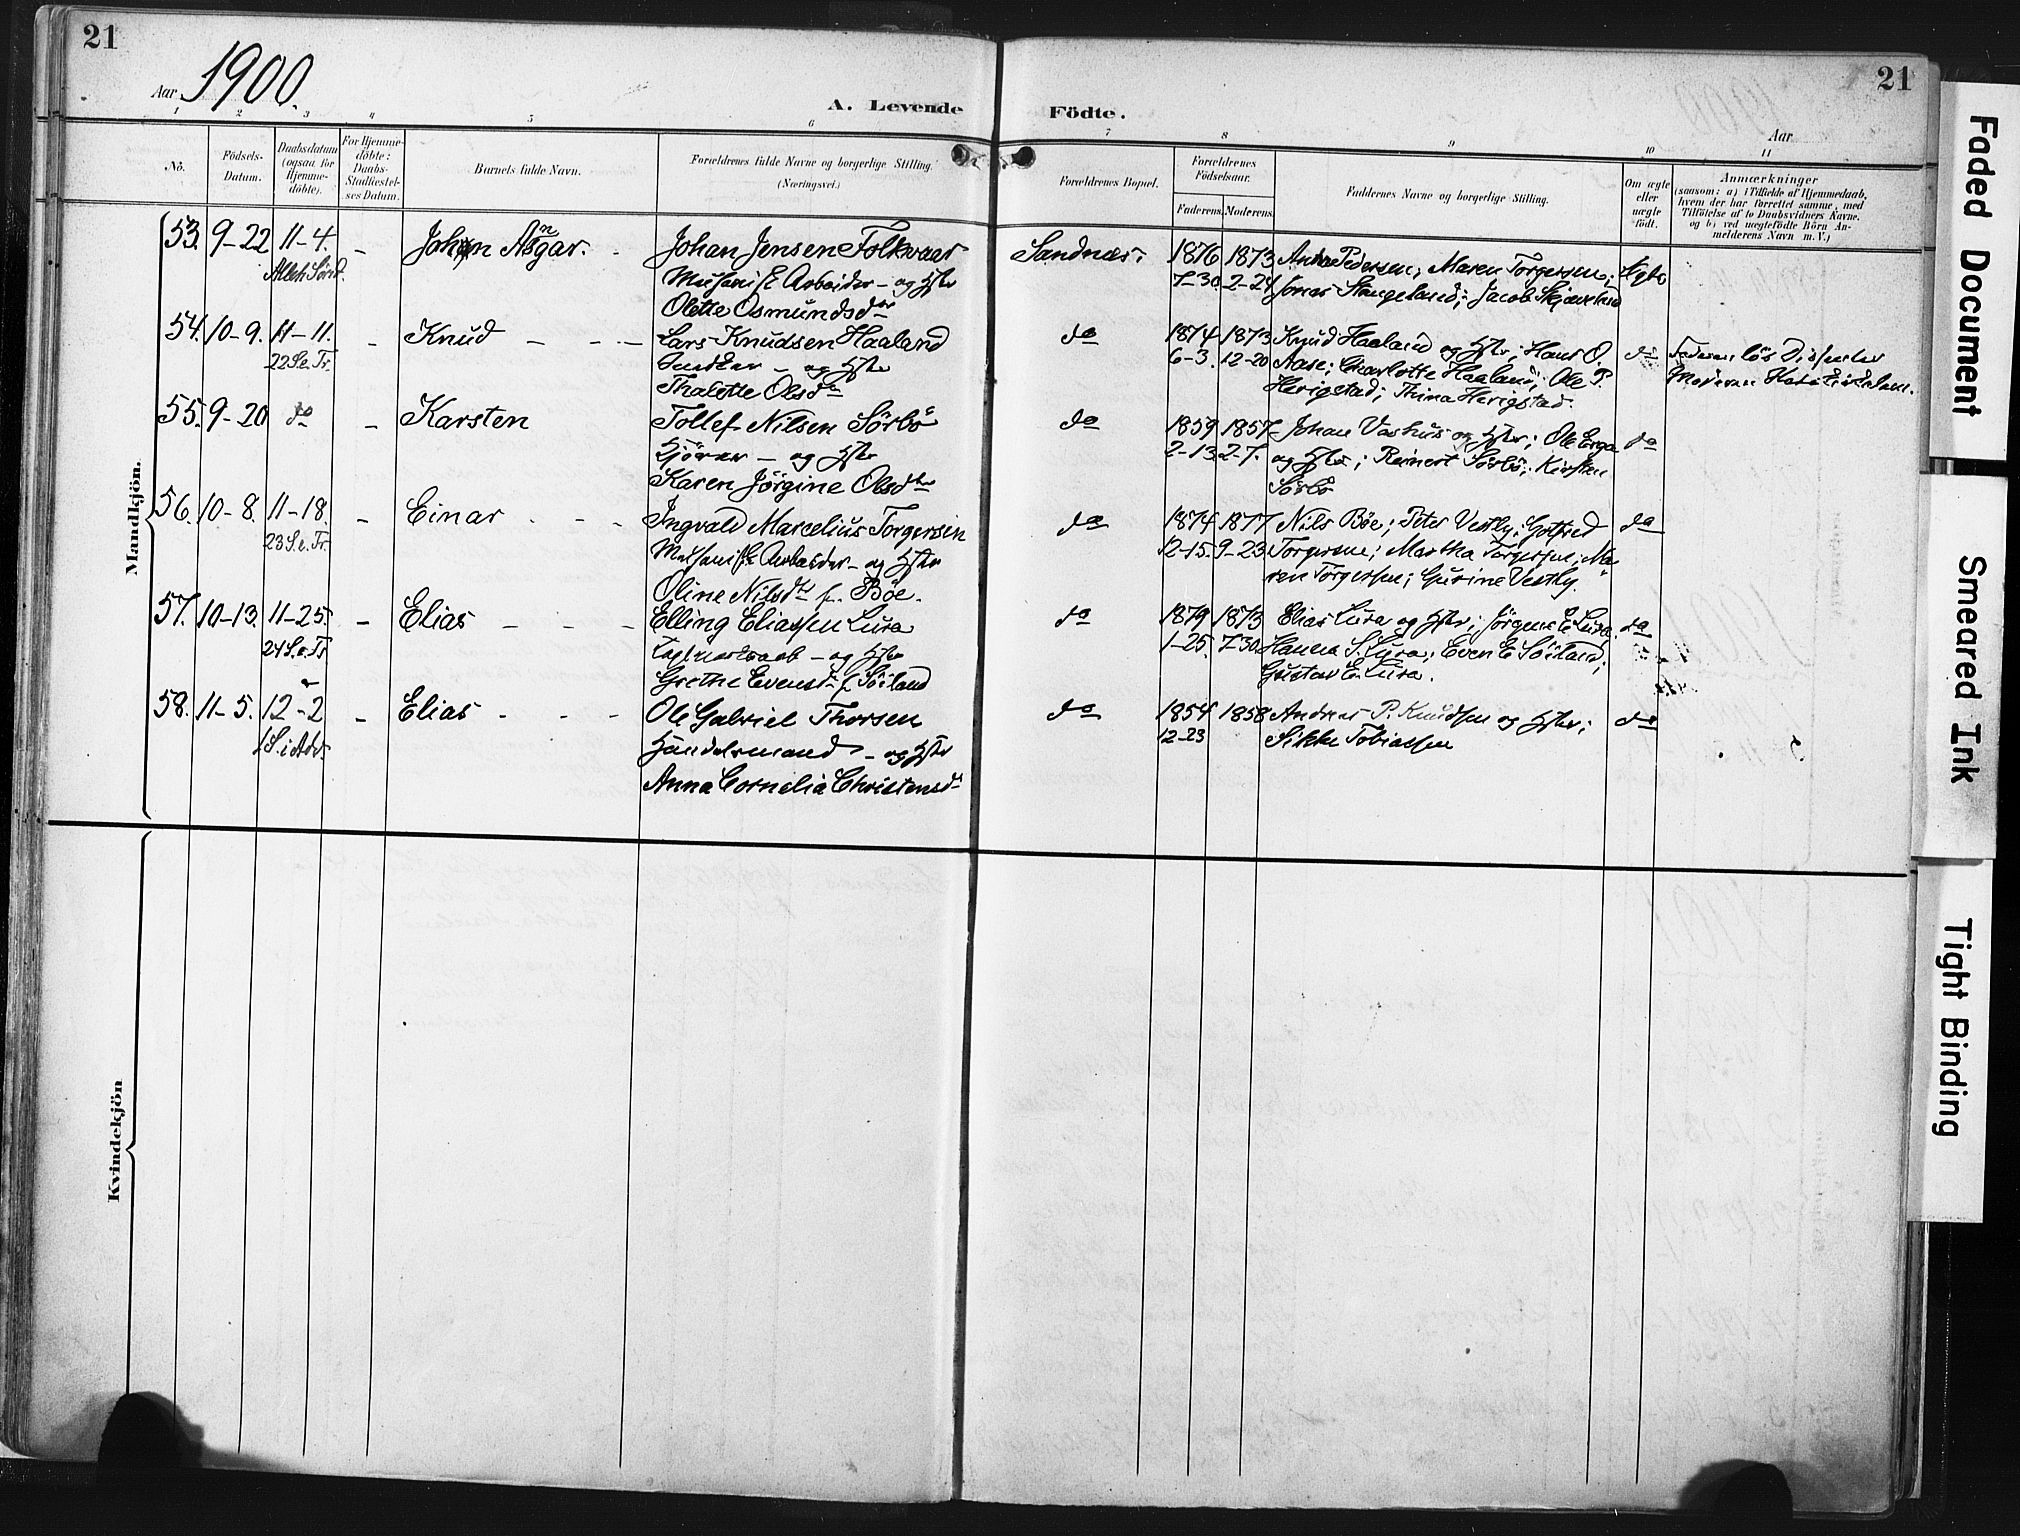 21
Aar 1900.
A. Levende
Födte.
21
Aar
1 2 3 4 5 6 7 8 9 10 11
No.
Födsels-
Datum.
Daabsdatum
(ogsaa for
Hjemme-
döbte).
For Hjemme-
döbte:
Daabs-
Stadfæstel-
ses Datum.
Barnets fulde Navn.
Forældrenes fulde Navne og borgerlige Stilling.
(Næringsvei.)
Forældrenes Bopæl.
Forældrenes
Födselsaar.
Faderens. Moderens.
Faddernes Navne og borgerlige Stilling.
Om ægte
eller
uægte
födt.
Anmærkninger
(saasom: a) i Tilfælde af Hjemmedaab,
hvem der har forrettet samme, med
Tilföielse af to Daabsvidners Navne.
og b) ved uægtefödte Börn An-
melderens Navn m. V.)
Mandkjön.
53. 9-22 11-4. - Johan Asgar. - Johan Jensen Folkvaar Sandnæs. 1876 1873 Pedersen; Maren Torgersen; Ægte
7-30. 2-24 Jonas Stangeland; Jacob Skjæveland
Arbeider - og Hstr
Olette Osmundsdtr
54. 10-9. 11-11. - Knud - - - Lars Knudsen Haaland do 1874 1873 Knud Haaland og Hstr; Hans O. do
22 S.e.Tr. Snedker - og Hstr 6-3. 12-20 Aase; Charlotte Haaland; Ole P.
Thalette Olsdtr Herigstad; Thina Herigstad.
Faderen lös Dissenter
55. 9-20 do - Karsten Tollef Nilsen Sörbö do 1859 1857 Johan Vashus og Hstr; Ole Erga do
- og Hstr 2-13. 2-7. og Hstr; Reinert Sörbö; Kirsten
Karen Jörgine Olsdtr Sörbö
56. 10-8. 11-18. - Einar - - - Ingvald Marcelius Torgersen do 1874 1877 Nils Böe; Peter Vestly; Gotfred do
23 S.e.Tr. Arbeider - og Hstr 12-15. 9-23 Torgersen; Martha Torgersen; Ma-
Oline Nilsdtr f. Böe. ren Torgersen; Gurine Vestly.
57. 10-13. 11-25. - Elias - - - Elling Eliassen Lura do 1879 1873 Elias Lura og Hstr; Jörgen E. Lura. do
24 S.e.Tr - og Hstr 1-25. 7-30. Hanna S. Lura; Even E. Söiland;
Grethe Evensd. f. Söiland Gustav E. Lura.
58. 11-5. 12-2 - Elias - - - Ole Gabriel Thorsen do 1854 1858 Andreas P. Knudsen og Hstr; do
1 S.i Adv. Handelsmand - og Hstr 12-23 Sikke Tobiassen
Anna Cornelia Christensdtr
Kvindekjön
Faded Document
Smeared Ink
Tight Binding